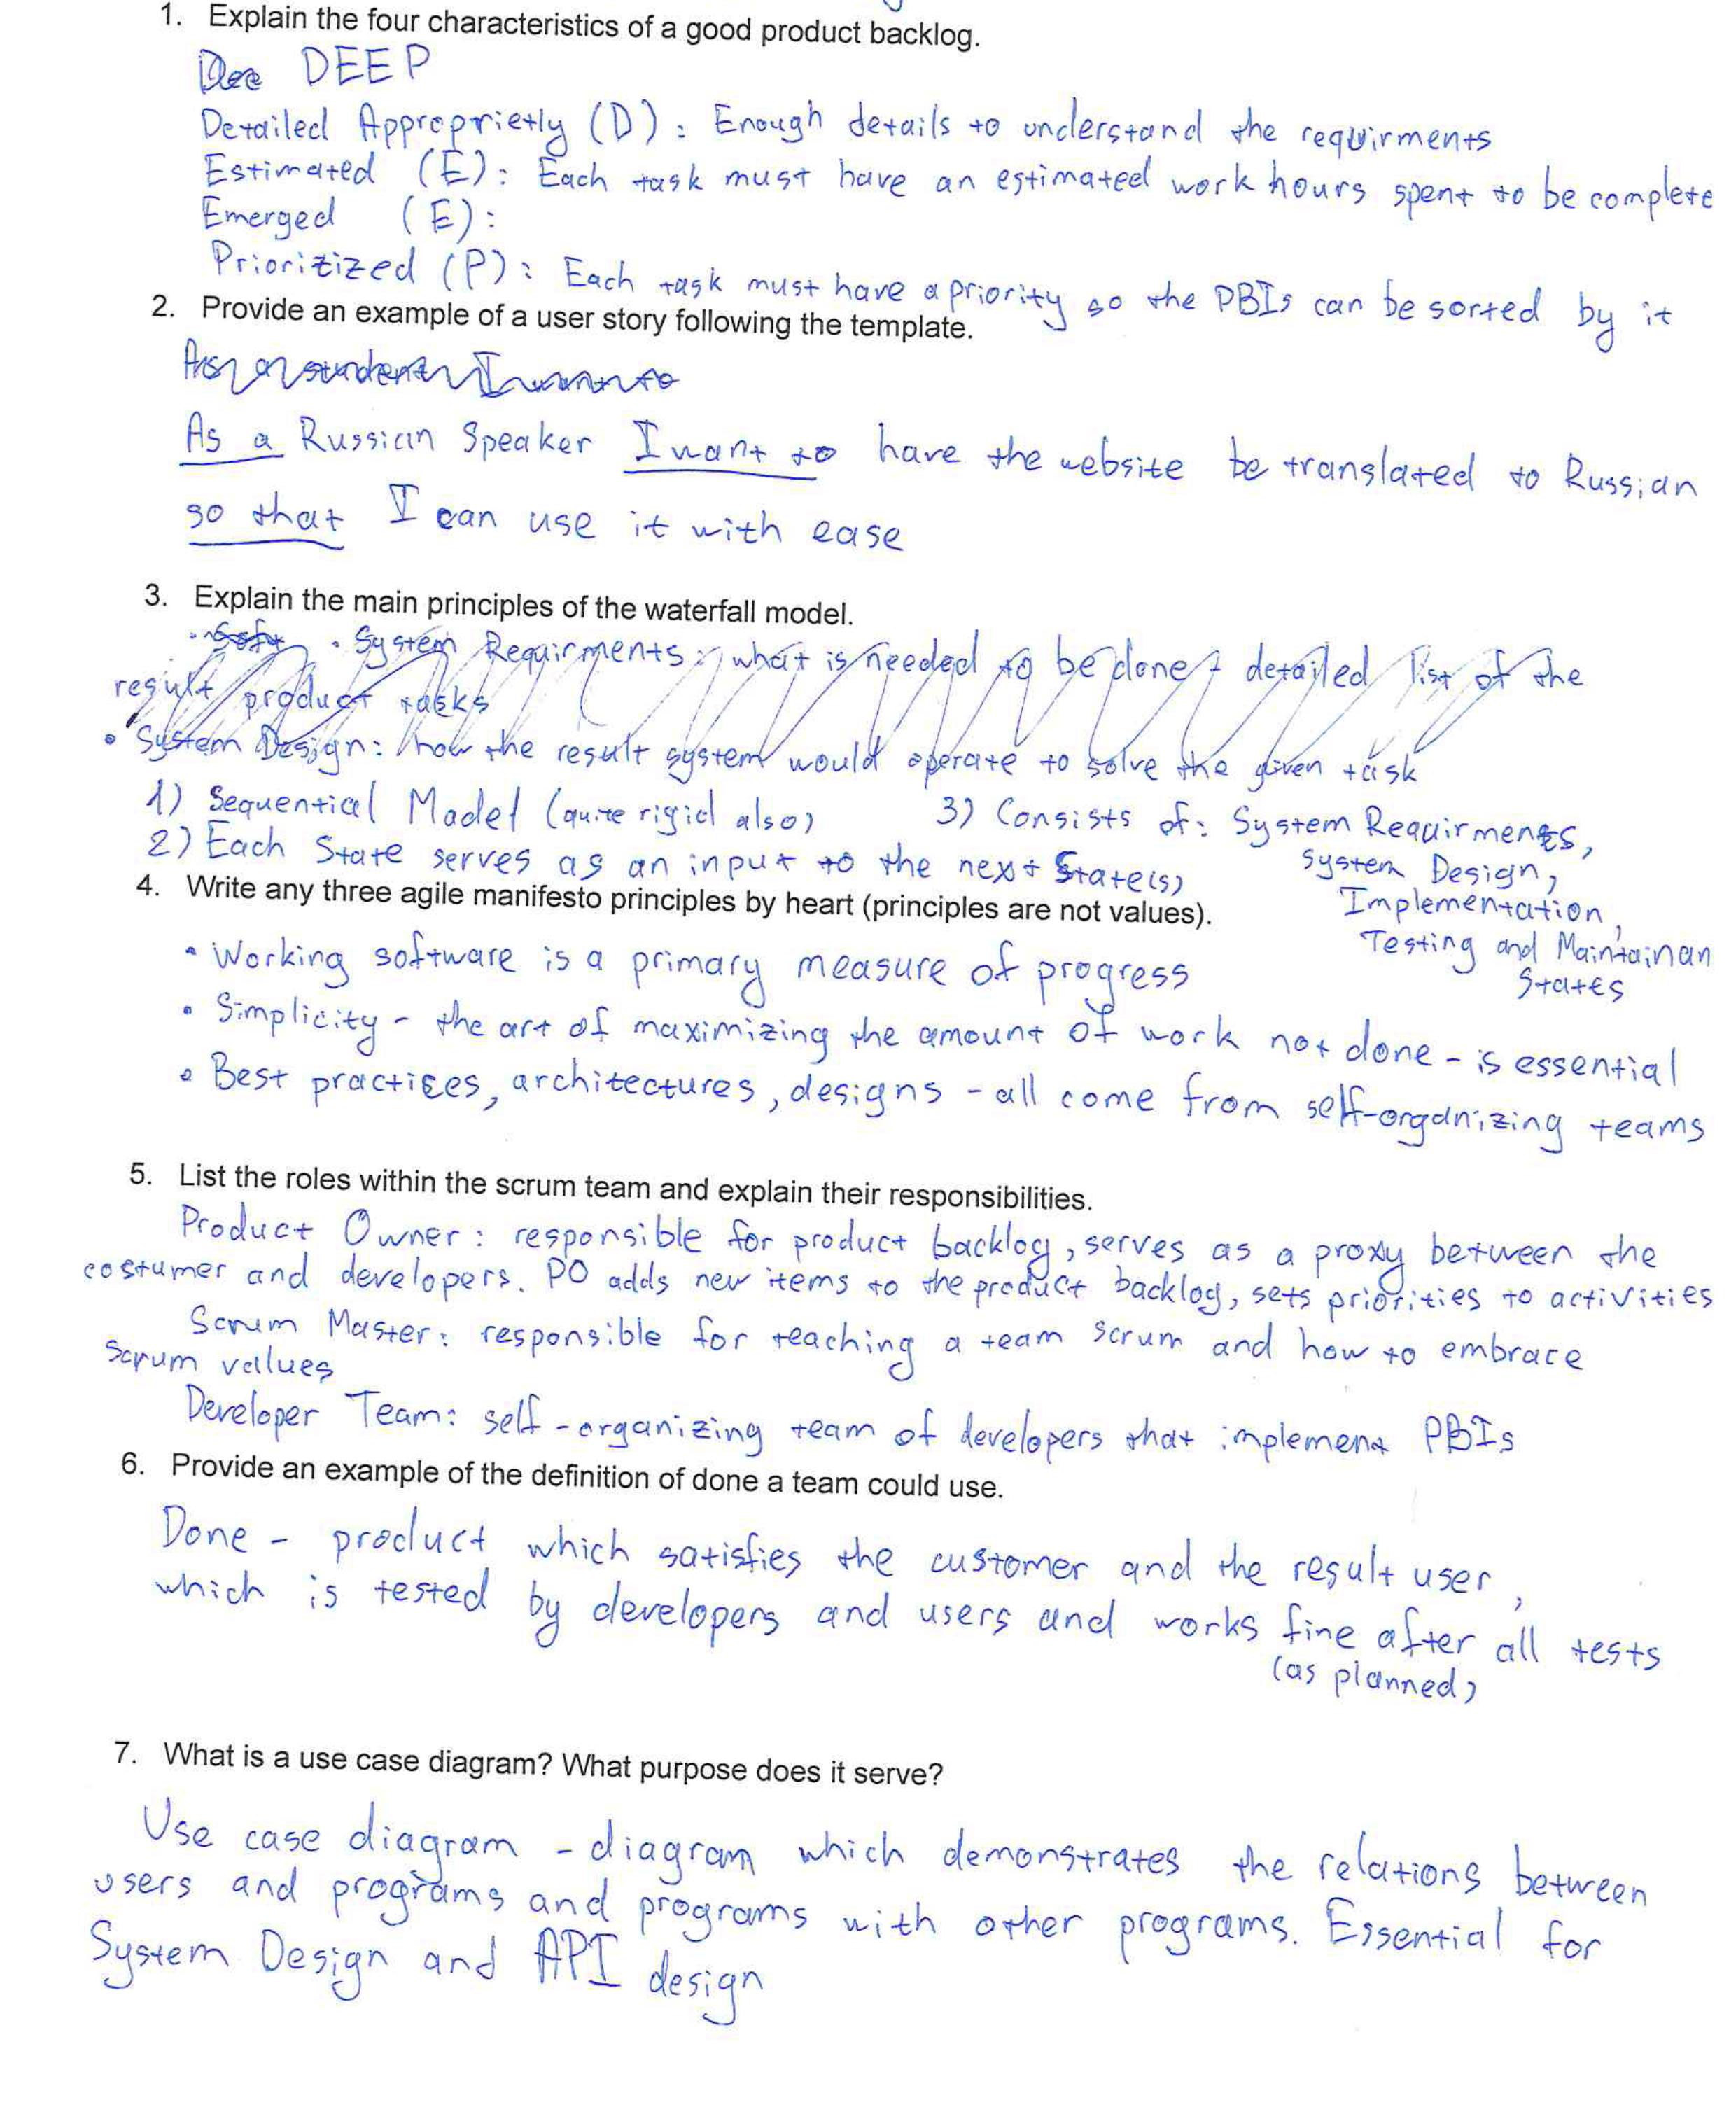 1. Explain the four characteristics of a good product backlog.
Dee DEEP
Detailed Appropriетly (D): Enough details to understand the requirments
Estimated (E): Each task must have an estimated work hours spent to be complete
Emerged (E):
Prioritized (P): Each task must have a priority so the PBIs can be sorted by it
2. Provide an example of a user story following the template.
As a student I want to
As a Russian Speaker I want to have the website be translated to Russian
so that I can use it with ease
3. Explain the main principles of the waterfall model.
• System Requirments: what is needed to be done, detailed list of the
result product tasks
• System Design: how the result system would operate to solve the given task
1) Sequential Model (quite rigid also)
2) Each State serves as an input to the next State(s)
3) Consists of: System Requirments,
System Design,
Implementation,
Testing and Maintainan
States
4. Write any three agile manifesto principles by heart (principles are not values).
• Working software is a primary measure of progress
• Simplicity - the art of maximizing the amount of work not done - is essential
• Best practices, architectures, designs - all come from self-organizing teams
5. List the roles within the scrum team and explain their responsibilities.
Product Owner: responsible for product backlog, serves as a proxy between the
costumer and developers. PO adds new items to the product backlog, sets priorities to activities
Scrum Master: responsible for teaching a team scrum and how to embrace
scrum values
Developer Team: self-organizing team of developers that implement PBIs
6. Provide an example of the definition of done a team could use.
Done - product which satisfies the customer and the result user,
which is tested by developers and users and works fine after all tests
(as planned)
7. What is a use case diagram? What purpose does it serve?
Use case diagram - diagram which demonstrates the relations between
users and programs and programs with other programs. Essential for
System Design and API design